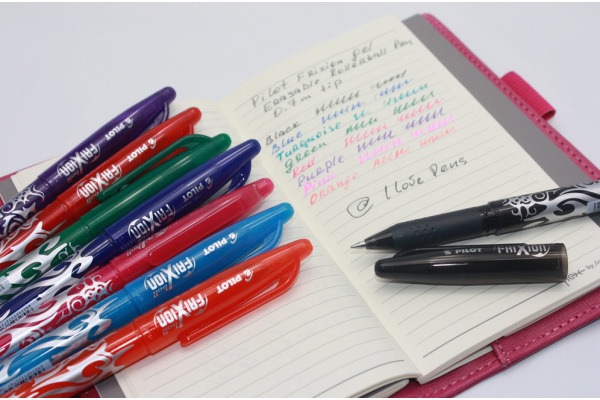 Pilot Frixion gel
Erasable Rollerball Pen
0.7m tip
Black
Blue
Turquoise
green
Red
Purple
Pink
Orange
@ I love Pens
PILOT
FRIXION
PILOT
FRIXION
PILOT
FRIXION
PILOT
FRIXION
PILOT
FRIXION
PILOT
FRIXION
PILOT
FRIXION
PILOT FRIXION